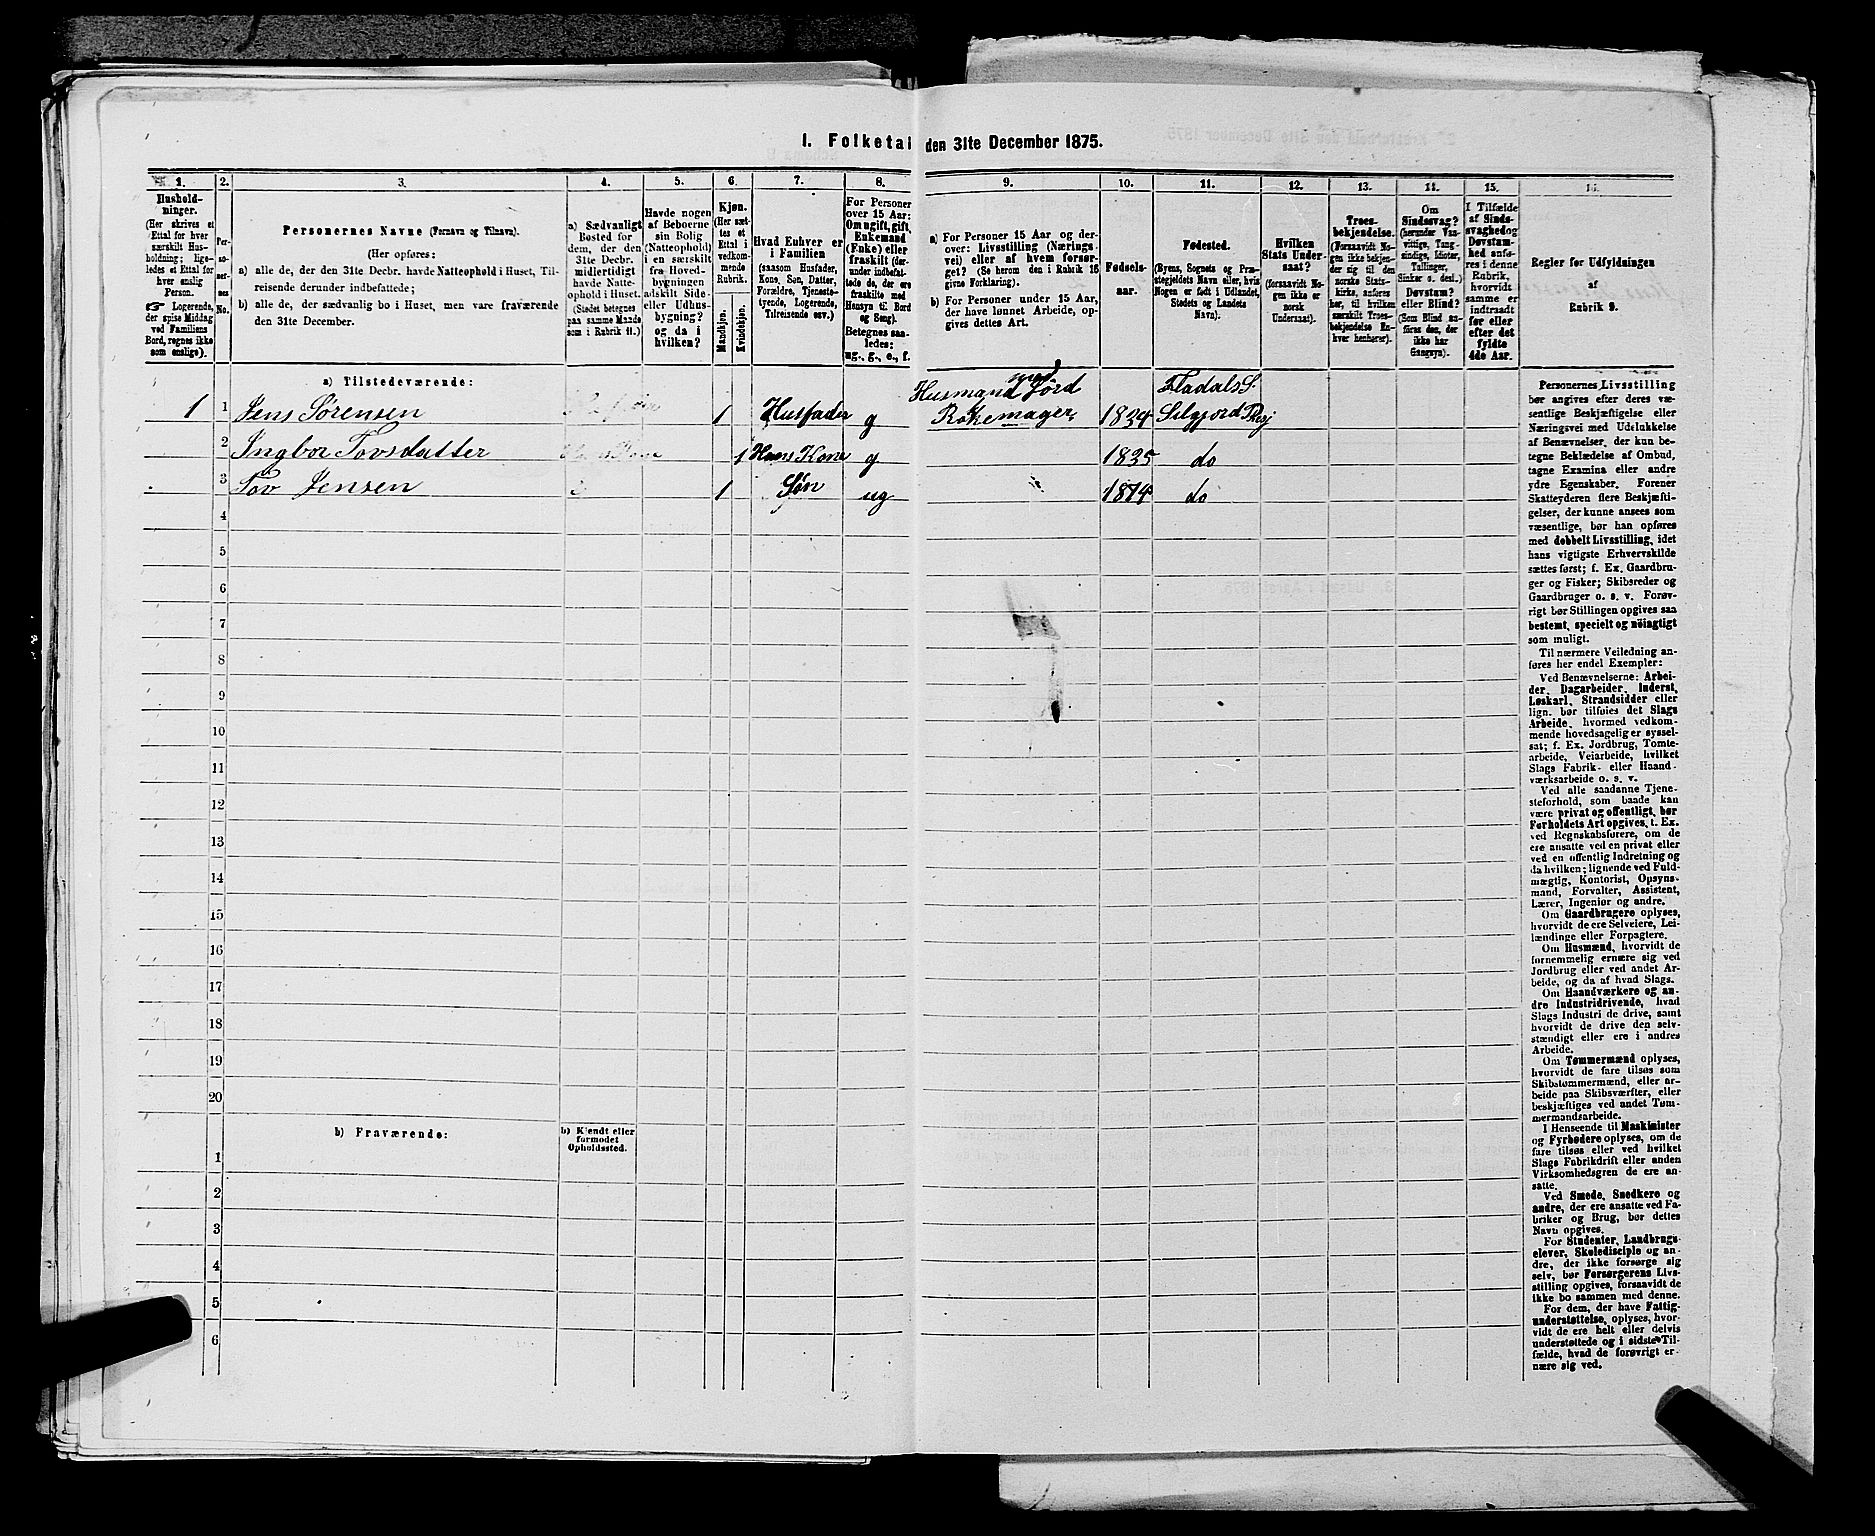 1. Folketal den 31te December 1875.
1.
2.
3.
4.
5.
6.
7.
8.
9.
10.
11.
12.
13.
14.
15.
16.
Hushold-
ninger.
(Her skrives et
Ettal for hver
særskilt Hus-
holdning; lige-
ledes et Ettal for
hver enslig
Person.
☞ Logerende,
der spise Middag
ved Familiens
Bord, regnes ikke
som enslige).
Per-
so-
ner-
nes
No.
Personernes Navne (Fornavn og Tilnavn).
(Her opføres:
a) alle de, der den 31te Decbr. havde Natteophold i Huset, Til-
reisende derunder indbefattede;
b) alle de, der sædvanlig bo i Huset, men vare fraværende
den 31te December.
a) Sædvanligt
Bosted for
dem, der den
31te Decbr.
midlertidigt
havde Natte-
ophold i Huset.
(Stedet betegnes
paa samme Maade
som i Rubrik 11.)
Havde nogen
af Beboerne
sin Bolig
(Natteophold)
i en særskilt
fra Hoved-
bygningen
adskilt Side-
eller Udhus-
bygning?
og da i
hvilken?
Kjøn.
(Her sæt-
tes et
Ettal i
vedkom-
mende
Rubrik.
Mandkjøn.
Kvindekjøn.
Hvad Enhver er
i Familien
(saasom Husfader,
Kone, Søn, Datter,
Forældre, Tjeneste-
tyende, Logerende,
Tilreisende osv.)
For Personer
over 15 Aar:
Om ugift, gift,
Enkemand
(Enke) eller
fraskilt (der-
under indbefat-
tede de, der ere
fraskilte med
Hensyn til Bord
og Seng).
Betegnes saa-
ledes:
ug., g., e., f.
a) For Personer 15 Aar og der-
over: Livsstilling (Nærings-
vei) eller af hvem forsør-
get? (Se herom den i Rubrik 16
givne Forklaring).
b) For Personer under 15 Aar,
der have lønnet Arbeide, op-
gives dettes Art.
Fødsels-
aar.
Fødested.
(Byens, Sognets og Præ-
stegjeldets Navn eller, hvis
Nogen er født i Udlandet,
Stedets og Landets
Navn).
Hvilken
Stats Under-
saat?
(forsaavidt No-
gen ikke er
norsk
Undersaat).
Troes-
bekjendelse.
(Forsaavidt No-
gen ikke bekjen-
der sig til den
norske Stats-
kirke, anføres
her, til hvilken
særskilt Troes-
bekjendelse En-
hver henhører).
Om
Sindssvag?
(herunder Van-
vittige, Tung-
sindige, Idioter,
Tullinger,
Sinker o. desl.)
Døvstum?
eller Blind?
(Som Blind an-
føres den, der
ikke har
Gangsyn).
I Tilfælde
af Sinds-
svaghed og
Døvstum-
hed anfø-
res i denne
Rubrik,
hvorvidt
samme er
indtraadt
før eller
efter det
fyldte
4de Aar.
Regler for Udfyldningen
af
Rubrik 9.
a) Tilstedeværende:
Husmand med Jord
Fladals S.
1 1 Jens Sørensen 1 Husfader g Rokemager 1834
2 Ingbor Tovsdatter 1 Hans Kone g 1835 do
3 Tov Jensen 1 Søn ug 1874 do
4
5
6
7
8
9
10
11
12
13
14
15
16
17
18
19
20
b) Fraværende:
b) Kjendt eller
formodet
Opholdssted.
1
2
3
4
5
6
Personernes Livsstilling
bør angives efter deres væ-
sentlige Beskjæftigelse eller
Næringsvei med Udelukkelse
af Benævnelser, der kun be-
tegne Beklædelse af Ombud,
tagne Examina eller andre
ydre Egenskaber. Forener
Skatteyderen flere Beskjæfti-
gelser, der kunne ansees som
væsentlige, bør han opføres
med dobbelt Livsstilling, idet
hans vigtigste Erhvervskilde
sættes først; f. Ex. Gaardbru-
ger og Fisker; Skibsreder og
Gaardbruger o. s. v. Forøv-
rigt bør Stillingen opgives saa
bestemt, specielt og nöiagtigt
som muligt.
Til nærmere Veiledning an-
føres her endel Exempler:
Ved Benævnelserne: Arbei-
der, Dagarbeider, Inderst,
Løskarl, Strandsidder eller
lign. bør tilføies det Slags
Arbeide, hvormed vedkom-
mende hovedsagelig er syssel-
sat; f. Ex. Jordbrug, Tomte-
arbeide, Veiarbeide, hvilket
Slags Fabrik- eller Haand-
værksarbeide o. s. v.
Ved alle saadanne Tjene-
steforhold, som baade kan
være privat og offentligt, bør
Forholdets Art opgives, t. Ex.
ved Regnskabsførere, om de
ere ansatte ved en privat eller
ved en offentlig Indretning og
da hvilken; lignende ved Fuld-
mægtig, Kontorist, Opsyns-
mand, Forvalter, Assistent,
Lærer, Ingeniør og andre.
Om Gaardbrugere oplyses,
hvorvidt de ere Selveiere, Lei-
lændinge eller Forpagtere.
Om Husmænd, hvorvidt de
fornemmelig ernære sig ved
Jordbrug eller ved andet Ar-
beide, og da af hvad Slags.
Om Haandværkere og an-
dre Industridrivende, hvad
Slags Industri de drive, samt
hvorvidt de drive den selv-
stændigt eller ere i andres
Arbeide.
Om Tømmermænd oplyses,
hvorvidt de fare tilsøs som
Skibstømmermænd, eller ar-
beide paa Skibsværfter, eller
beskjæftiges ved andet Tøm-
mermandsarbeide.
I Henseende til Maskinister
og Fyrbødere oplyses, om de
fare tilsøs eller ved hvilket
Slags Fabrikdrift eller anden
Virksomhedsgren de ere an-
satte.
Ved Smede, Snedkere og
andre, der ere ansatte ved Fa-
briker og Brug, bør dettes
Navn opgives.
For Studenter, Landbrugs-
elever, Skoledisciple og an-
dre, der ikke forsørge sig
selv, bør Forsørgerens Livs-
stilling opgives, forsaavidt de
ikke bo sammen med denne.
For dem, der have Fattig-
understøttelse, oplyses, hvor-
vidt de ere helt eller delvis
understøttede og i sidste Til-
fælde, hvad de forøvrigt er-
nære sig ved.